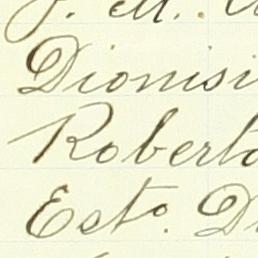 J. M.
Dionisi
Roberto
Esto. D